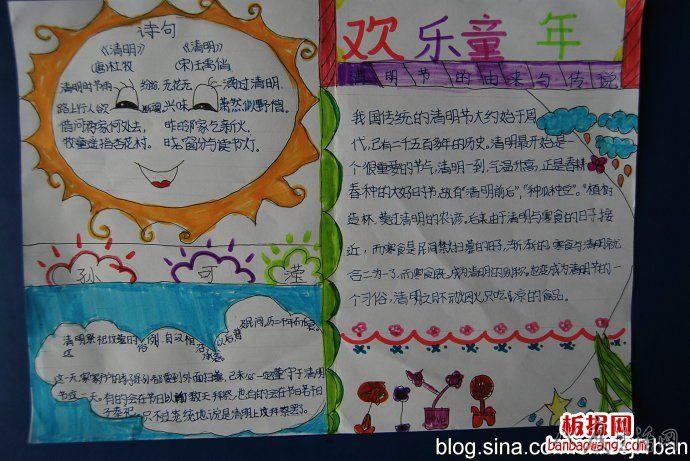 诗句
《清明》
(唐)杜牧
清明时节雨纷纷
路上行人欲断魂
借问酒家何处去,
牧童遥指杏花村。
《清明》
(宋)王禹偁
无花无酒过清明,
兴味萧然似野僧。
昨日邻家乞新火,
晓窗分与读书灯。
孙 可 滢
清明祭祀坟墓的俗例,自汉相沿
这一天,家家户户的
这一天。有的会在节日以前
只不过笼统地说是清明上坟拜祭罢。
欢乐童年
清明节的由来与传说
我国传统的清明节大约始于周
代,已有二千五百多年的历史。清明最开始是一
个很重要的节气,清明一到,气温升高,正是春耕
春种的大好时节,故有"清明前后","种瓜种豆"。"植树
造林,莫过清明的农谚。后来由于清明与寒食的日子接
近,而寒食是民间禁火扫墓的日子,渐渐的,寒食与清明就
合二为一了,而寒食既成为清明的别称,也变成为清明节的一
个习俗,清明之日不动烟火,只吃凉的食品。
LOVE
板报网
banbaowang.com
blog.sina.co